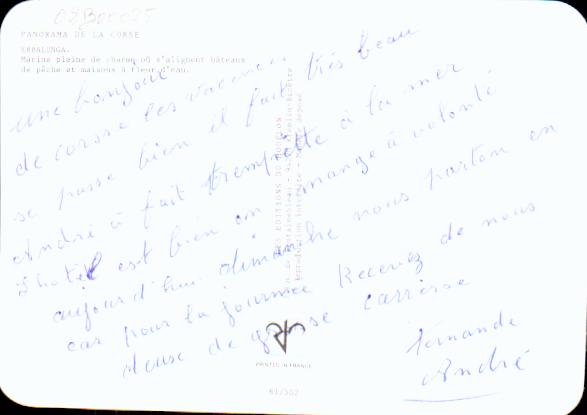 08B00025
PANORAMA DE LA CORSE
ERBALUNGA.
Marine pleine de charme où s'alignent bateaux
de pêche et maisons à fleur d'eau.
une bonjour
de corsse les vacances
se passe bien il fait très beau
André à fait trempette à la mer
l'hotel est bien on mange à volonté
aujourd'hui dimanche nous parton en
car pour la journée Recevez de nous
deuse de grosse carresse
Fernande
André
LES EDITIONS DU
PRINTED IN FRANCE
61/502